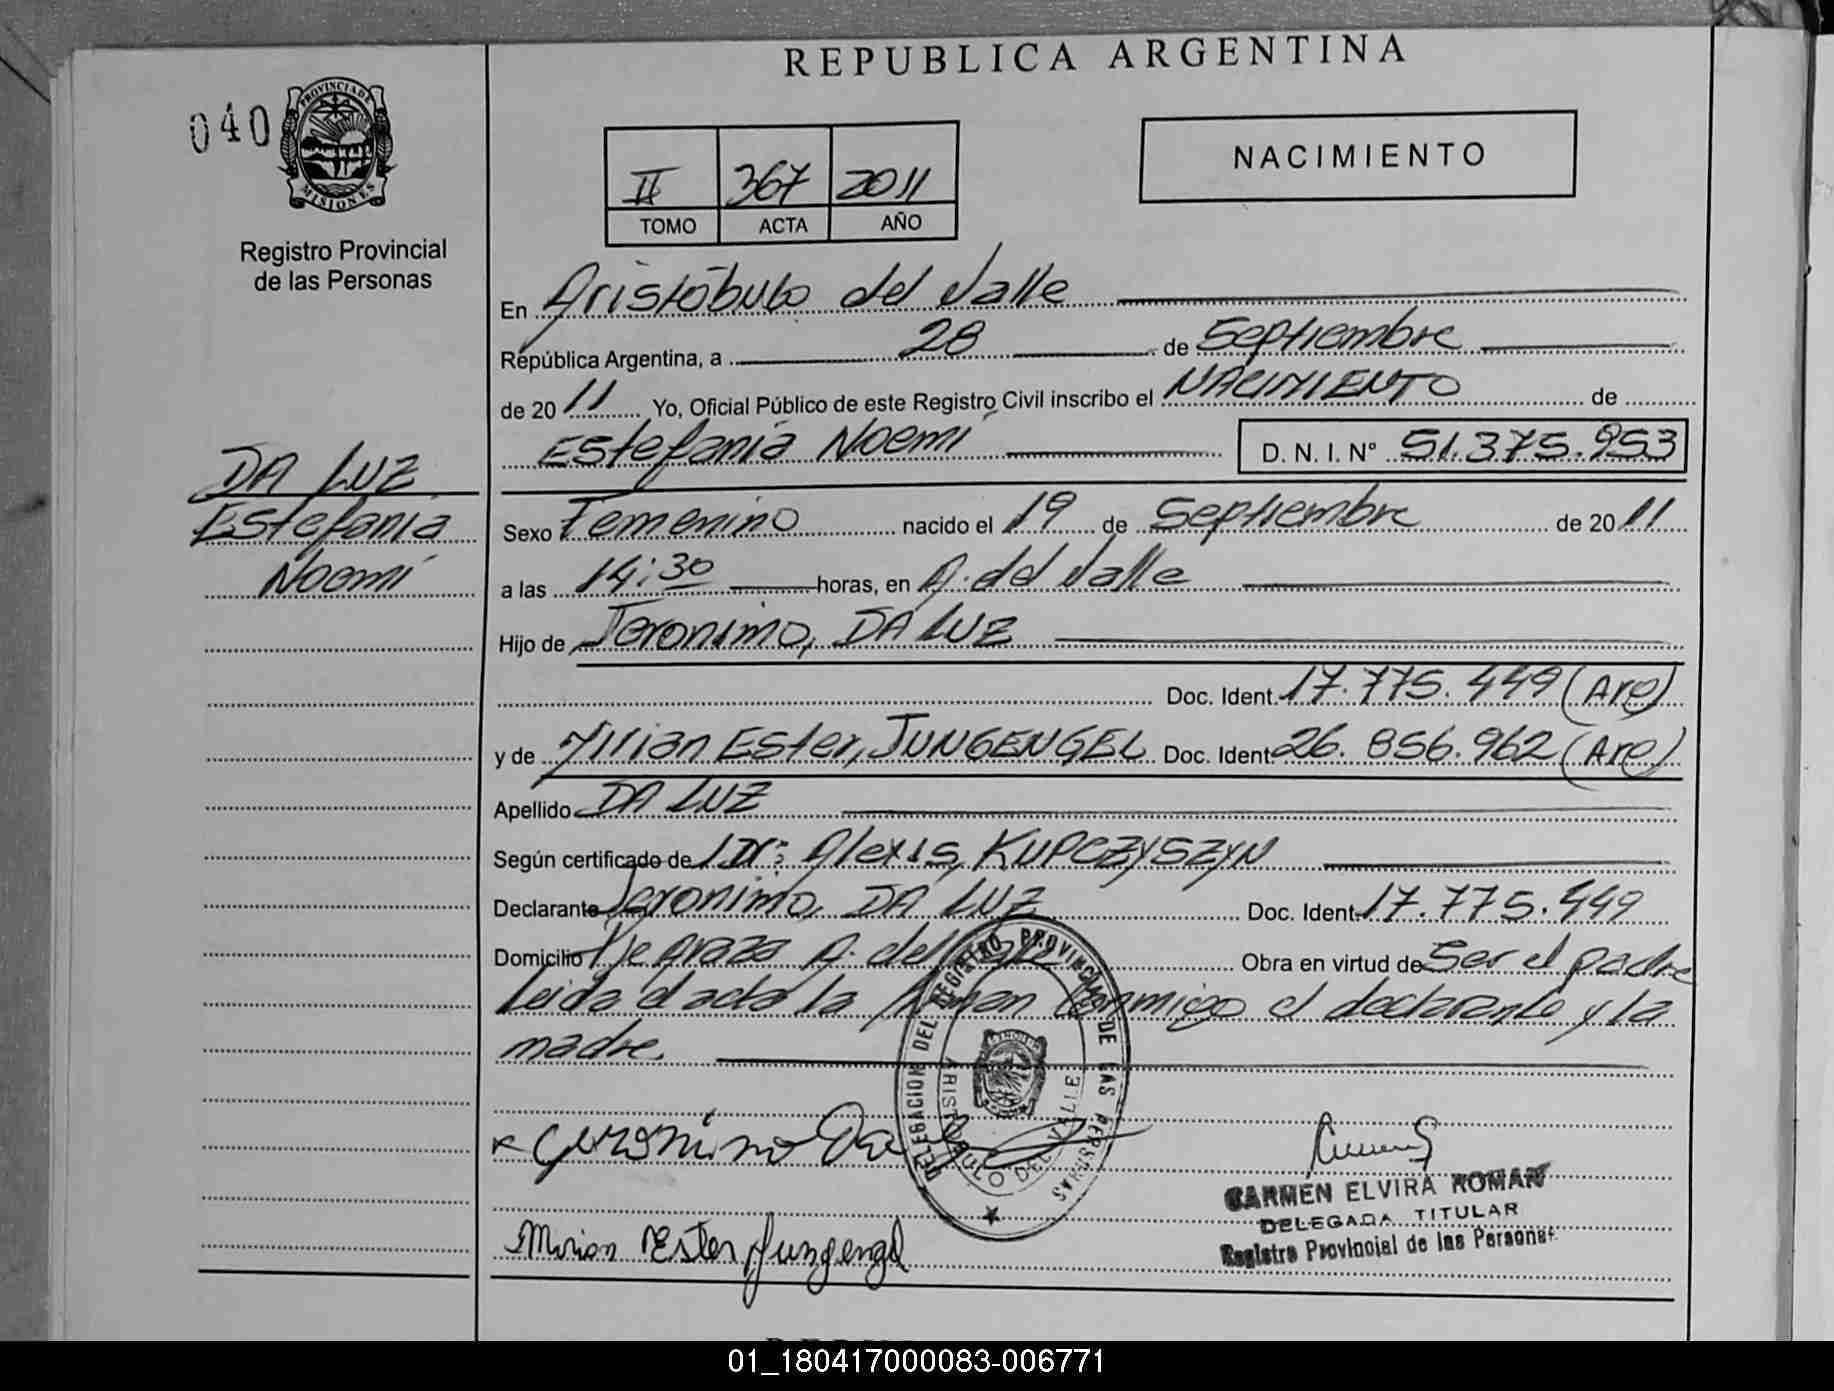 REPUBLICA ARGENTINA
040
PROVINCIA DE
MISIONES
Registro Provincial
de las Personas
II 367 2011
TOMO ACTA AÑO
NACIMIENTO
En Aristóbulo del Valle
República Argentina, a 28 de Septiembre
de 2011 Yo, Oficial Público de este Registro Civil inscribo el NACIMIENTO de
Estefania Noemí D. N. I. N° 51.375.953
DA LUZ
Estefania
Noemí
Sexo Femenino nacido el 19 de Septiembre de 2011
a las 14:30 horas, en A. del Valle
Hijo de Jeronimo, DA LUZ
Doc. Ident. 17.775.449 (Arg)
y de Mirian Ester, JUNGENGEL Doc. Ident. 26.856.962 (Arg)
Apellido DA LUZ
Según certificado de Dr: Alexis, KUPCZYSZYN
Declarante Jeronimo, DA LUZ Doc. Ident. 17.775.449
Domicilio A. del Valle Obra en virtud de Ser el padre
Leida el acta la firman conmigo el declarante y la
madre.
DELEGACION DEL REGISTRO PROVINCIAL DE LAS PERSONAS
ARISTOBULO DEL VALLE
Geronimo Da
CARMEN ELVIRA ROMAN
DELEGADA TITULAR
Registro Provincial de las Personas
Mirian Ester Jungengel
01_180417000083-006771